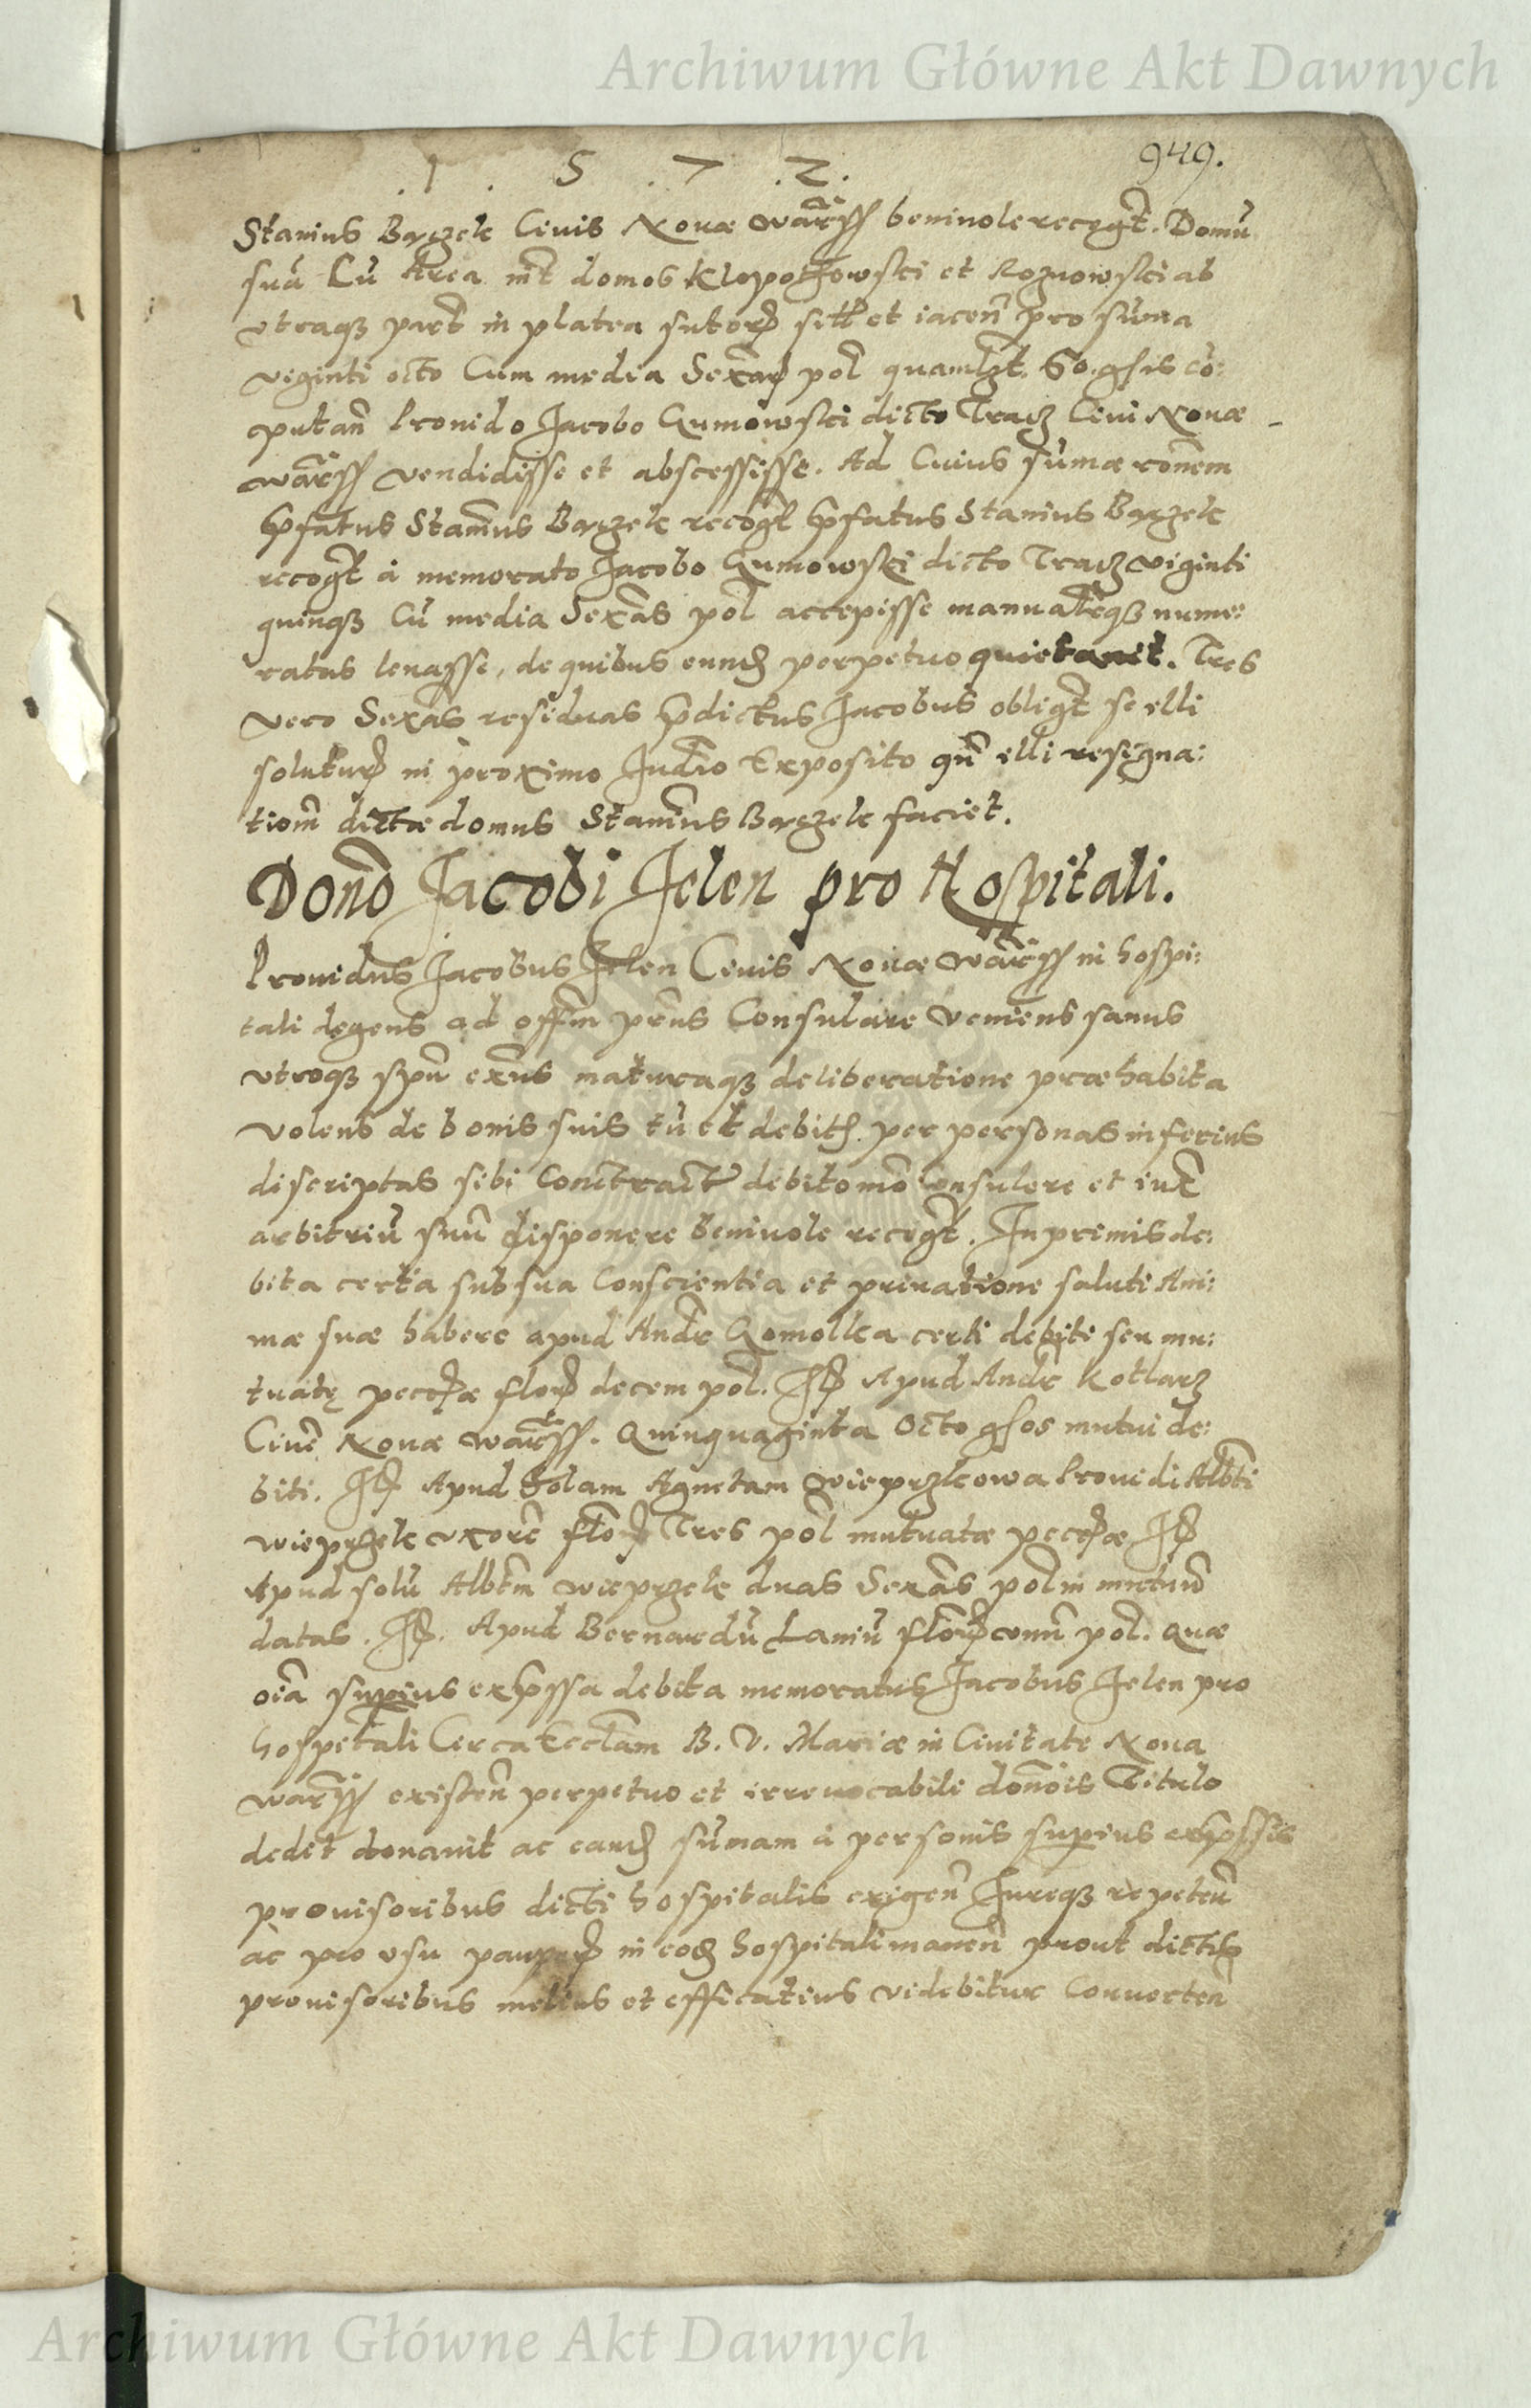 Archiwum Główne Akt Dawnych
. 1 . 5 . 7 . 2 .
949.
Stanius Bączek Civis Novæ Warss benivole recogt. Domū
suā Cū Area int domos Klopothowski et Roznowski ab
utraqz part in platea sutorz sitt et iacen pro sūma
viginti octo Cum media Sexarz pol quamlzt. 60. gssis cō:
putan Provido Jacobo Gumowski dicto Tracz Civi Novæ
Warss vendidisse et abscessisse. Ad Cuius sūmæ ronem
pfatus Staniūs Bączek recogt pfatus Stanius Bączek
recogt à memorato Jacobo Gumowski dicto Tracz viginti
quinqz Cū media Sexās pol accepisse manualrqz nume:
ratas levasse, de quibus eundz perpetuo quietavit. Tres
vero Sexās residuas pdictus Jacobus obligt se illi
soluturz in proximo Judio Exposito qn illi resigna:
tiom dictæ domus Staniūs Bączek faciet.
Donō Jacobi Jelen pro Hospitali.
Providus Jacobus Jelen Civis Novæ Warss in hospi:
tali degens ad offm pns Consulare veniens sanus
utroqz exns maturaqz deliberatione præhabita
volens de bonis suis tū et debitz per personas inferius
discriptas sibi Conctract debitomō Consulere et iux
arbitriū suū disponere benivole recogt. Inprimis de:
bita certa sub sua Conscientia et privatione saluti Ani:
mæ suæ habere apud Andr Gomolka certi debiti seu mu:
tuatę peccæ florz decem pol. Itz Apud Andr Kotlarz
Civē Novæ Warss. Quinquaginta Octo gsos mutui de:
biti. Itz Apud Agnetam Wieprzkowa Providi Albti
Wieprzek uxorē florz Tres pol mutuatæ peccæ Itz
Apud solū Albtm Wieprzek duas Sexās pol in mutuū
datas. Itz. Apud Bernardū Laniū florz pol. Quæ
oīa supius expssa debita memoratus Jacobus Jelen pro
hospitali Circa Ecclam B. V. Mariæ in Civitate Nova
Warss existen perpetuo et irrevocabili donōis Titulo
dedit donavit ac eandz sūmam à personis supius expssis
provisoribus dicti hospitalis exigen Jureqz repeten
ac pro usu pauperz in eodz hospitali manen prout dictis
provisoribus melius et efficatius videbitur Converten
Archiwum Główne Akt Dawnych